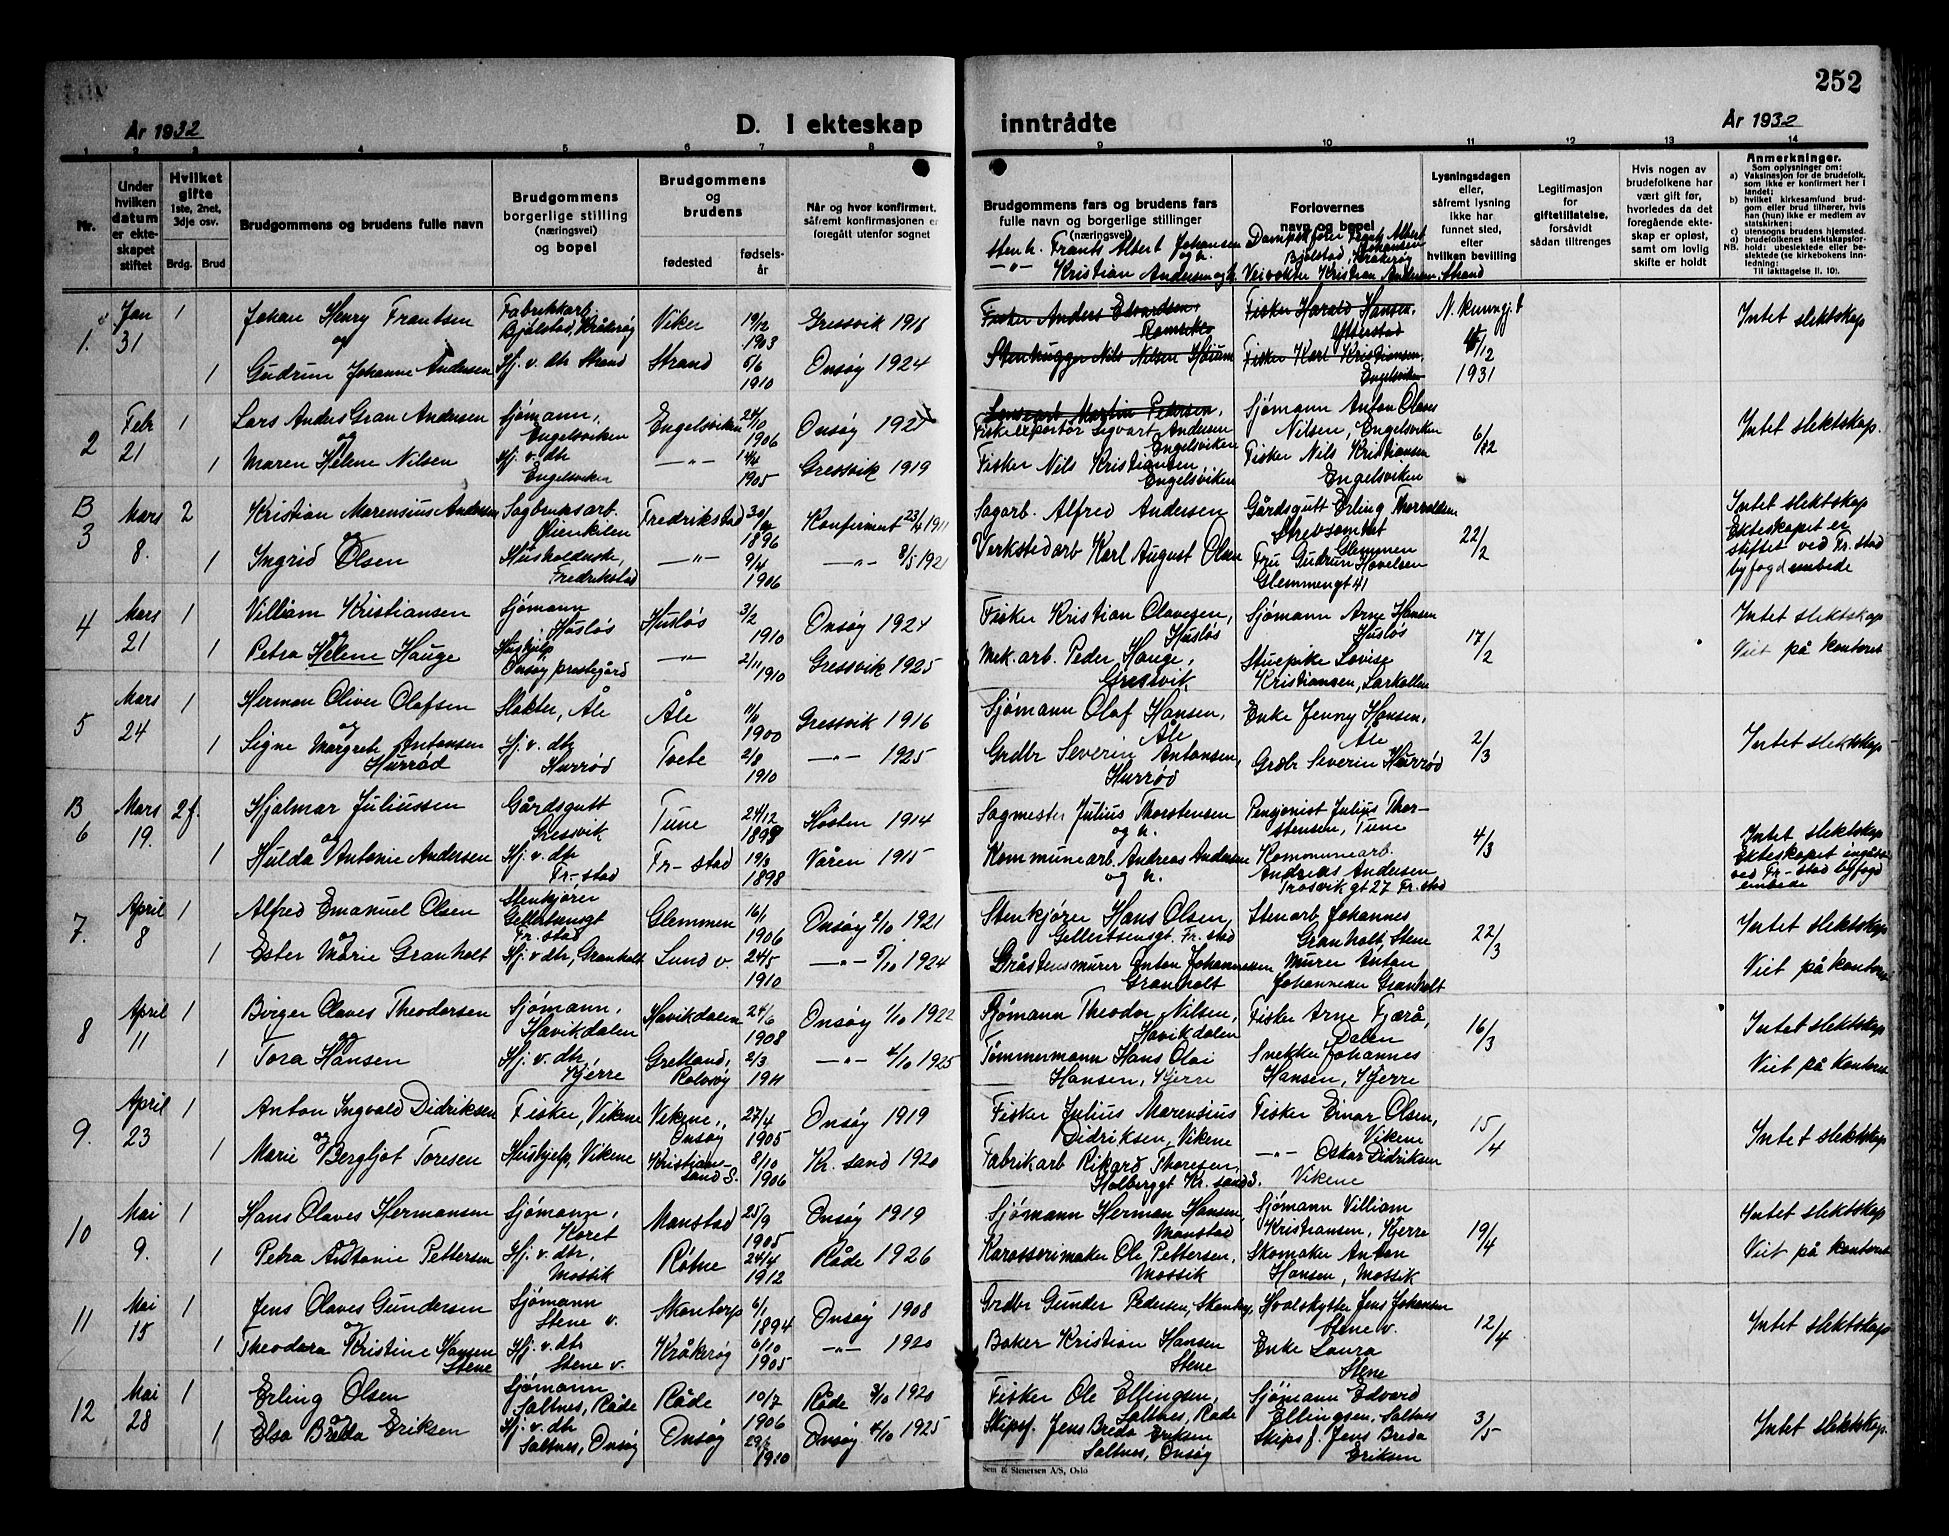 252
År 1932
D. I ekteskap inntrådte
År 1932
1 2 3 4 5 6 7 8 9 10 11 12 13 14
Nr.
Under hvilken datum er ekteskapet stiftet
Hvilket gifte
1ste, 2net, 3dje osv.
Brdg.
Brud
Brudgommens og brudens fulle navn
Brudgommens borgerlige stilling (næringsvei) og bopel
Brudgommens og brudens
fødested
fødselsår
Når og hvor konfirmert, såfremt konfirmasjonen er foregått utenfor sognet
Brudgommens fars og brudens fars fulle navn og borgerlige stillinger (næringsvei)
Forlovernes navn og bopel
Lysningsdagen eller, såfremt lysning ikke har funnet sted, efter hvilken bevilling
Legitimasjon for giftetillatelse, forsåvidt sådan tiltrenges
Hvis nogen av brudefolkene har vært gift før, hvorledes da det foregående ekteskap er opløst, samt om lovlig skifte er holdt
Anmerkninger.
Som oplysninger om:
a) Vaksinasjon for de brudefolk, som ikke er konfirmert her i landet;
b) hvilket kirkesamfund brudgom eller brud tilhører, hvis han (hun) ikke er medlem av statskirken;
c) utensogns brudens hjemsted.
d) brudefolkenes slektskapsforhold: ubeslektede eller beslektede (se kirkebokens innledning:
NB. Til iakttagelse II. 10).
Stenh. Frants Albert Johansen og h.
Frants Albert Johansen
Bjølstad, Kråkerøy
-"- Kristian Andersen og h.
Veivokter Kristian Andersen, Strand
1. Jan 31
1
Johan Henry Frantsen
og
Fabrikkarb. Bjølstad, Kråkerøy
Viker
19/12 1903
Gressvik 1918
Fisker Anders Edvardsen,
Fisker Harald Hansen,
N. kunngj. b 4/12 1931
Intet slektskap
1
Gudrun Johanne Andersen
Hj. v. dtr Strand
Strand
5/6 1910
Onsøy 1924
Stenhugger Nils Nilsen
Fisker Karl Kristiansen, Engelsviken
2 Feb 21
1
Lars Anders Gran Andersen
og
Sjømann, Engelsviken
Engelsviken
24/10 1906
Onsøy 1921
Martin Pedersen,
Fiskeeksportør Sigvart Andersen Engelsviken
Sjømann Anton Olaves Nilsen, Engelsviken
6/12
Intet slektskap.
1
Maren Helene Nilsen
Hj. v. dtr Engelsviken
-"-
14/4 1905
Gressvik 1919
Fisker Nils Kristiansen, Engelsviken
Fisker Nils Kristiansen Engelsviken
B 3 Mars 8.
2
Kristian Marensius Andersen
og
Sagbruksarb. Øienkilen
Fredrikstad
1896
Konfirmert 23/4 1911
Sagarb. Alfred Andersen
Gårdsgutt Erling Thorvaldsen
Glemmen
22/2
Intet slektskap
Ekteskapet er stiftet ved Fr.stad byfogdembede
1
Ingrid Olsen
Husholderske, Fredrikstad
-"-
9/4 1906
-"- 8/5 1921
Verkstedarb Karl August Olsen
Fru Gudrun Hovelsen Glemmengt 41
4 Mars 21
1
Villiam Kristiansen
og
Sjømann Husløs
Husløs
3/2 1910
Onsøy 1924
Fisker Kristian Olavesen, Husløs
Sjømann Arne Hansen Husløs
17/2
Intet slektskap
Viet på kontoret
1
Petra Helene Hauge
Hushjelp Onsøy prestegård
-"-
2/11 1910
Gressvik 1925
Mek. arb. Peder Hauge, Gressvik
Stuepike Lovise Kristiansen, Larkollen
5 Mars 24
1
Herman Oliver Olafsen
og
Slakter, Åle
Åle
11/6 1900
Gressvik 1916
Sjømann Olaf Hansen, Åle
Enke Jenny Hansen, Åle
2/3
Intet slektskap
1
Signe Margrete Antonsen Hurrød
Hj. v. dtr Hurrød
Toete
2/8 1910
-"- 1925
Grdbr Severin Antonsen, Hurrød
Grdbr Severin Hurrød
B 6 Mars 19.
2 f.
Hjalmar Juliussen
og
Gårdsgutt Gressvik
Tune
24/12 1899
Høsten 1914
Sagmester Julius Thorstensen og h.
Pensjonist Julius Thorstensen, Tune
4/3
Intet slektskap
Ekteskapet inngått ved Fr-stad byfogdembede
1
Hulda Antonie Andersen
Hj. v. dtr Fr-stad
Fr-stad
19/3 1898
Våren 1915
Kommunearb. Andreas Andersen og h.
Kommunearb Andreas Andersen Trosvikgt 27 Fr.stad
7. April 8
1
Alfred Emanuel Olsen
og
Stenkjører Gellertsensgt Fr.stad
Glemmen
16/1 1906
Onsøy 2/10 1921
Stenkjører Hans Olsen, Gellertsensgt. Fr.stad
Stenarb Johannes Granholt, Stene
22/3
Intet slektskap
Viet på kontoret
1
Ester Marie Granholt
Hj. v dtr, Granholt
Lund v.
24/5 1910
-"- 5/10 1924
Gråstensmurer Anton Johannessen Granholt
Murer Anton Johannesen Granholt
8 April 11
1
Birger Olaves Theodorsen
og
Sjømann, Havikdalen
Havikdalen
24/6 1908
Onsøy 1/10 1922
Sjømann Theodor Nilsen, Havikdalen
Fisker Arne Fjærå, Dalen
16/3
Intet slektskap
Viet på kontoret
1
Tora Hansen
Hj. v. dtr, Kjerre
Grelland, Rolvsøy
2/3 1911
-"- 4/10 1925
Tømmermann Hans Olai Hansen, Kjerre
Snekker Johannes Hansen, Kjerre
9. April 23
1
Anton Ingvald Didriksen
og
Fisker, Vikene
Vikene, Onsøy
27/4 1905
Onsøy 1919
Fisker Julius Marensius Didriksen, Vikene
Fisker Einar Olsen, Vikene
15/4
Intet slektskap
1
Marie Bergljot Toresen
Hushjelp, Vikene
Kristiansand S.
8/10 1906
Kr. sand 1920
Fabrikarb Rikard Thoresen, Holberggt Kr. sand S.
-"- Oskar Didriksen Vikene
10 Mai 9.
1
Hans Olaves Hermansen
og
Sjømann, Koret
Manstad
25/9 1905
Onsøy 1919
Sjømann Herman Hansen, Manstad
Sjømann Villiam Kristiansen, Kjerre
19/4
Intet slektskap
Viet på kontoret
1
Petra Antonie Pettersen
Hj. v. dtr, Mossik
Røtne
24/4 1912
Råde 1926
Karosserimaker Ole Pettersen, Mossik
Skomaker Anton Hansen, Mossik
11 Mai 15
1
Jens Olaves Gundersen
og
Sjømann Stene v.
Skantorp
6/1 1894
Onsøy 1908
Grdbr Gunder Pedersen,
Hvalskytter Jens Johansen Stene v.
12/4
Intet slektskap
1
Theodora Kristine Hansen Stene
Hj. v. dtr Stene v.
Kråkerøy
6/10 1905
-"- 1920
Baker Kristian Hansen Stene
Enke Laura Stene
12 Mai 28
1
Erling Olsen
og
Sjømann Saltnes, Råde
Råde
10/7 1906
Råde 3/10 1920
Fisker Ole Ellingsen, Saltnes, Råde
Sjømann Edvard Ellingsen, Saltnes
3/5
Intet slektskap.
1
Elsa Breda Eriksen
Hj. v. dtr Saltnes, Onsøy
Onsøy
1910
Onsøy 4/10 1925
Skipsf. Jens Breda Eriksen Saltnes, Onsøy
Skipsf. Jens Breda Eriksen
Sem & Stenersen A/S, Oslo